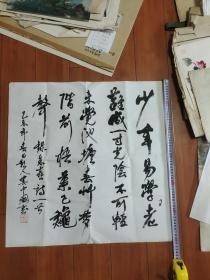 少年易學老
難成一寸光陰不可輕
未覺池塘春草夢
階前梧葉已龝
聲
詩一首